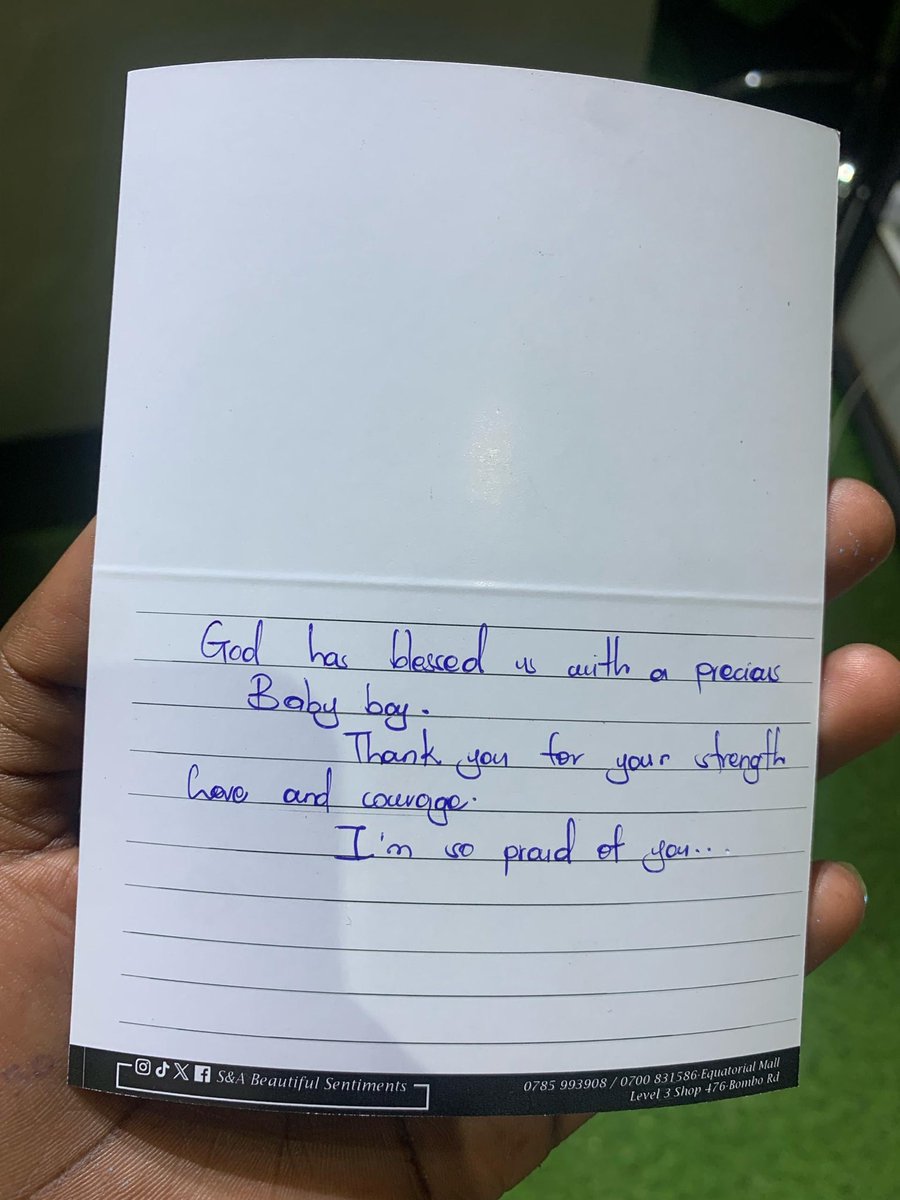 God has blessed us with a precious
Baby boy.
Thank you for your strength
Love and courage.
I'm so proud of you...
S&A Beautiful Sentiments
0785 993908 / 0700 831586-Equatorial Mall
Level 3 Shop 476-Bombo Rd